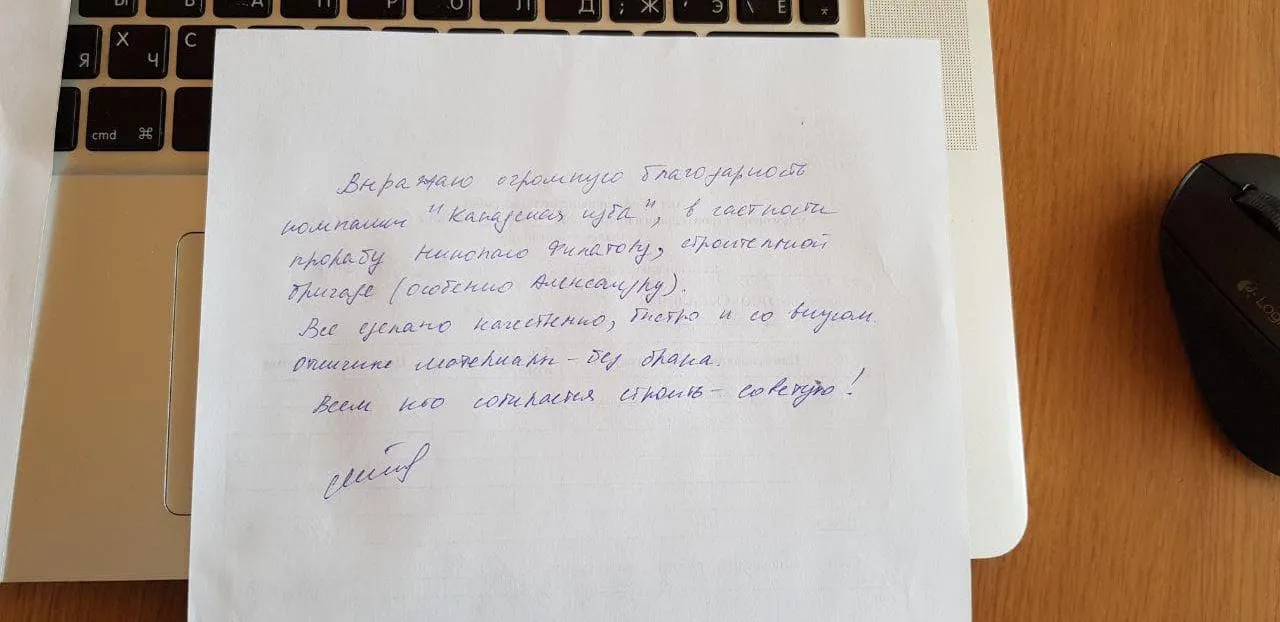 Ы В А П Р О Л Д ; Ж , Э \ Ё *
Я Х Ч С
cmd ⌘
Выражаю огромную благодарность
компании "Канадская изба", в частности
прорабу Николаю Филатову, строительной
бригаде (особенно Александру).
Все сделано качественно, быстро и со вкусом.
отличные материалы - без брака.
Всем кто собирается строить - советую!
Logi